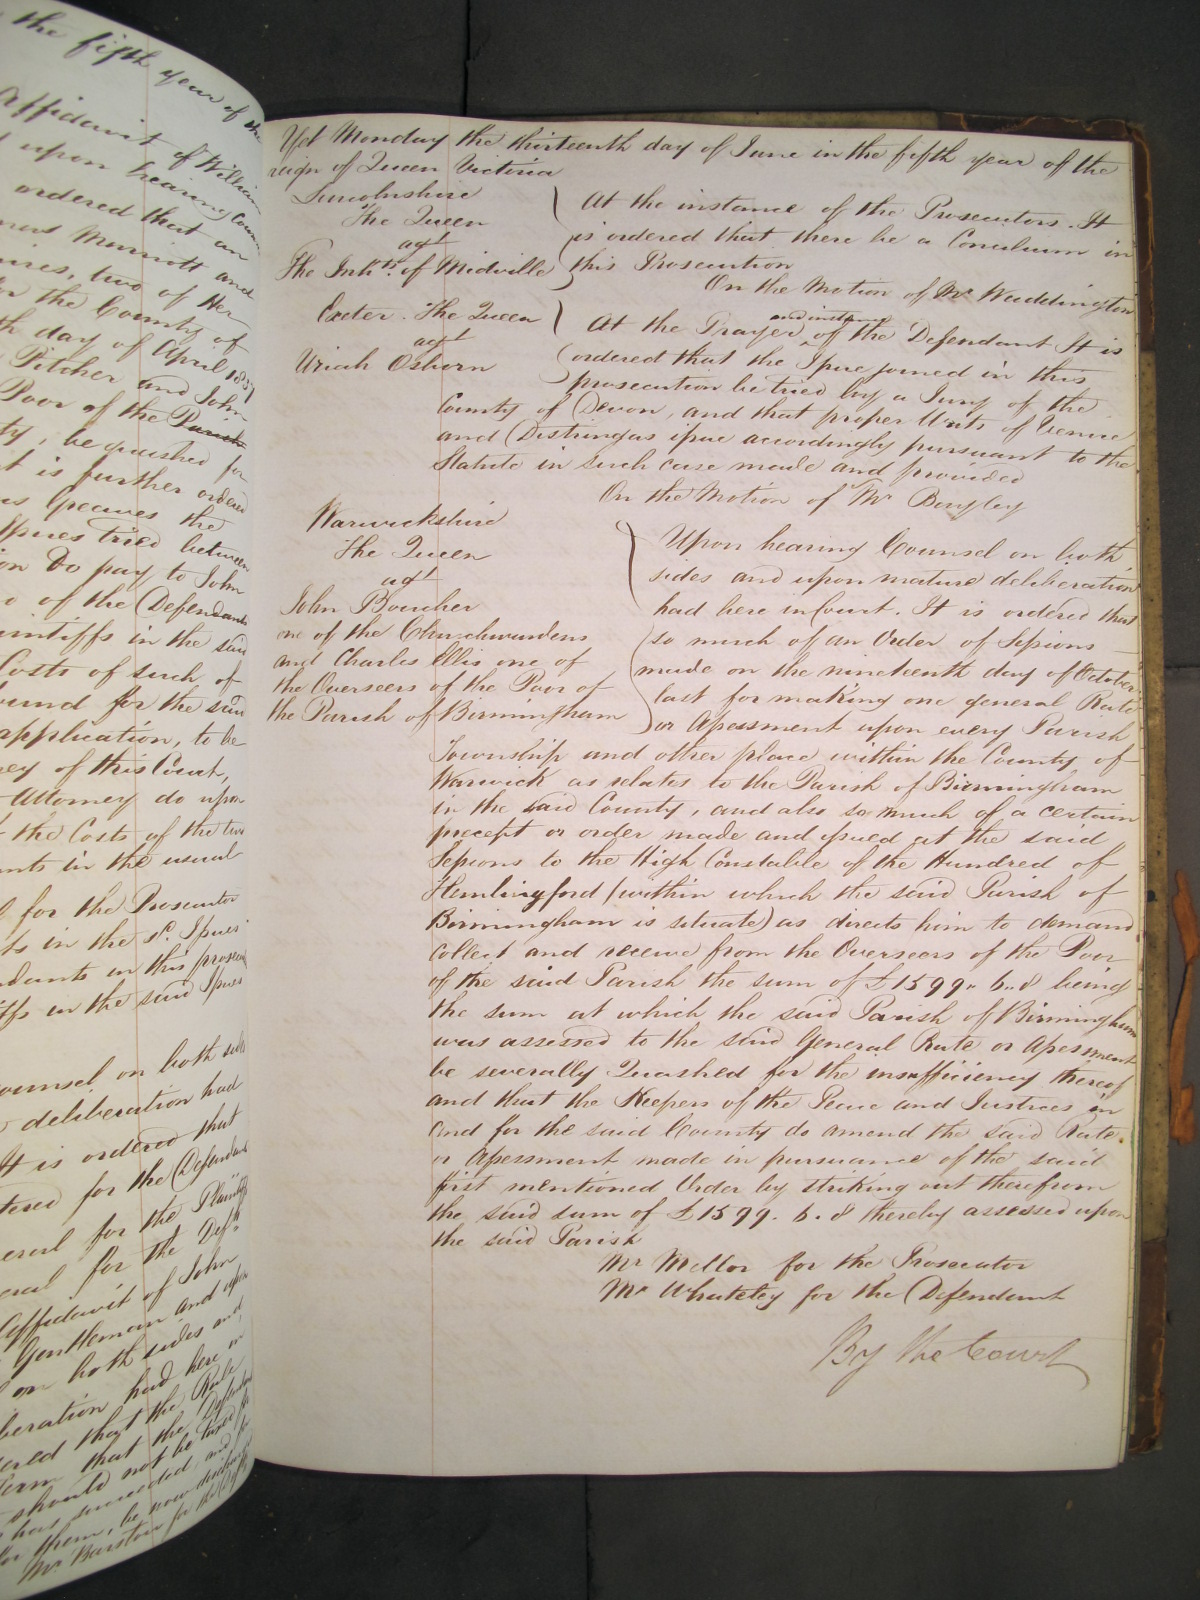 the fifth year of the
Affidavit of William
upon hearing Coun
ordered that an
Marriott and
two of Her
the County of
day of April 1837
Pitcher and John
Poor of the Parish
be quashed for
it is further ordered
the
Issues tried between
Do pay to John
of the Defendants
Plaintiffs in the said
Costs of such of
found for the said
application, to be
of this Court,
Attorney do upon
the Costs of the two
in the usual
for the Prosecutor
in the sd. Issues
in this prosecu
in the said Issues
Counsel on both sides
deliberation had
It is ordered that
for the Defendant
for the Plaintiffs
for the Defts
Affidavit of John
Gentleman and upon
on both sides and
deliberation had here in
ordered that the Rule
Term that the Defendant
should not be taxed for
has succeeded, and
for them, be now discharged
Mr Barstow for the Defts
Yet Monday the thirteenth day of June in the fifth year of the
reign of Queen Victoria
Lincolnshire
The Queen
agt
The Inhts. of Midville
At the instance of the Prosecutors. It
is ordered that there be a Concilium in
this Prosecution
On the Motion of Mr Waddington
Exeter. The Queen
agt
Uriah Osborn
and instance
At the Prayer ^ of the Defendant It is
ordered that the Issue joined in this
prosecution be tried by a Jury of the
County of Devon, and that proper Writs of Venire
and Distringas issue accordingly pursuant to the
Statute in such case made and provided
On the Motion of Mr Bayley
Warwickshire
The Queen
agt
John Boucher
one of the Churchwardens
and Charles Ellis one of
the Overseers of the Poor of
the Parish of Birmingham
Upon hearing Counsel on both
sides and upon mature deliberation
had here in Court. It is ordered that
so much of an Order of Sessions
made on the nineteenth day of October
last for making one general Rate
or Assessment upon every Parish
Township and other place within the County of
Warwick as relates to the Parish of Birmingham
in the said County, and also so much of a certain
precept or order made and issued at the said
Sessions to the High Constable of the Hundred of
Hemlingford (within which the said Parish of
Birmingham is situate) as directs him to demand
collect and receive from the Overseers of the Poor
of the said Parish the sum of £1599.. 6.. 8 being
the sum at which the said Parish of Birmingham
was assessed to the said General Rate or Assessment
be severally Quashed for the insufficiency thereof
and that the Keepers of the Peace and Justices in
and for the said County do amend the said Rate
or Assessment made in pursuance of the said
first mentioned Order by striking out therefrom
the said sum of £1599. 6. 8 thereby assessed upon
the said Parish
Mr Mellor for the Prosecutor
Mr Whateley for the Defendant
By the Court